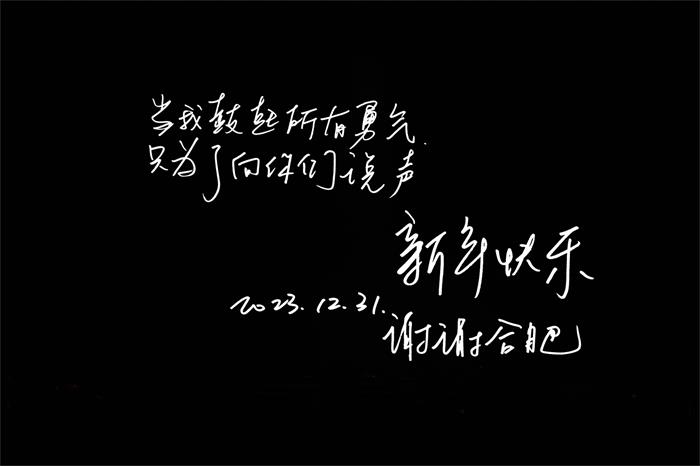 当我鼓起所有勇气
只为了向你们说声
新年快乐
2023.12.31.
谢谢合肥